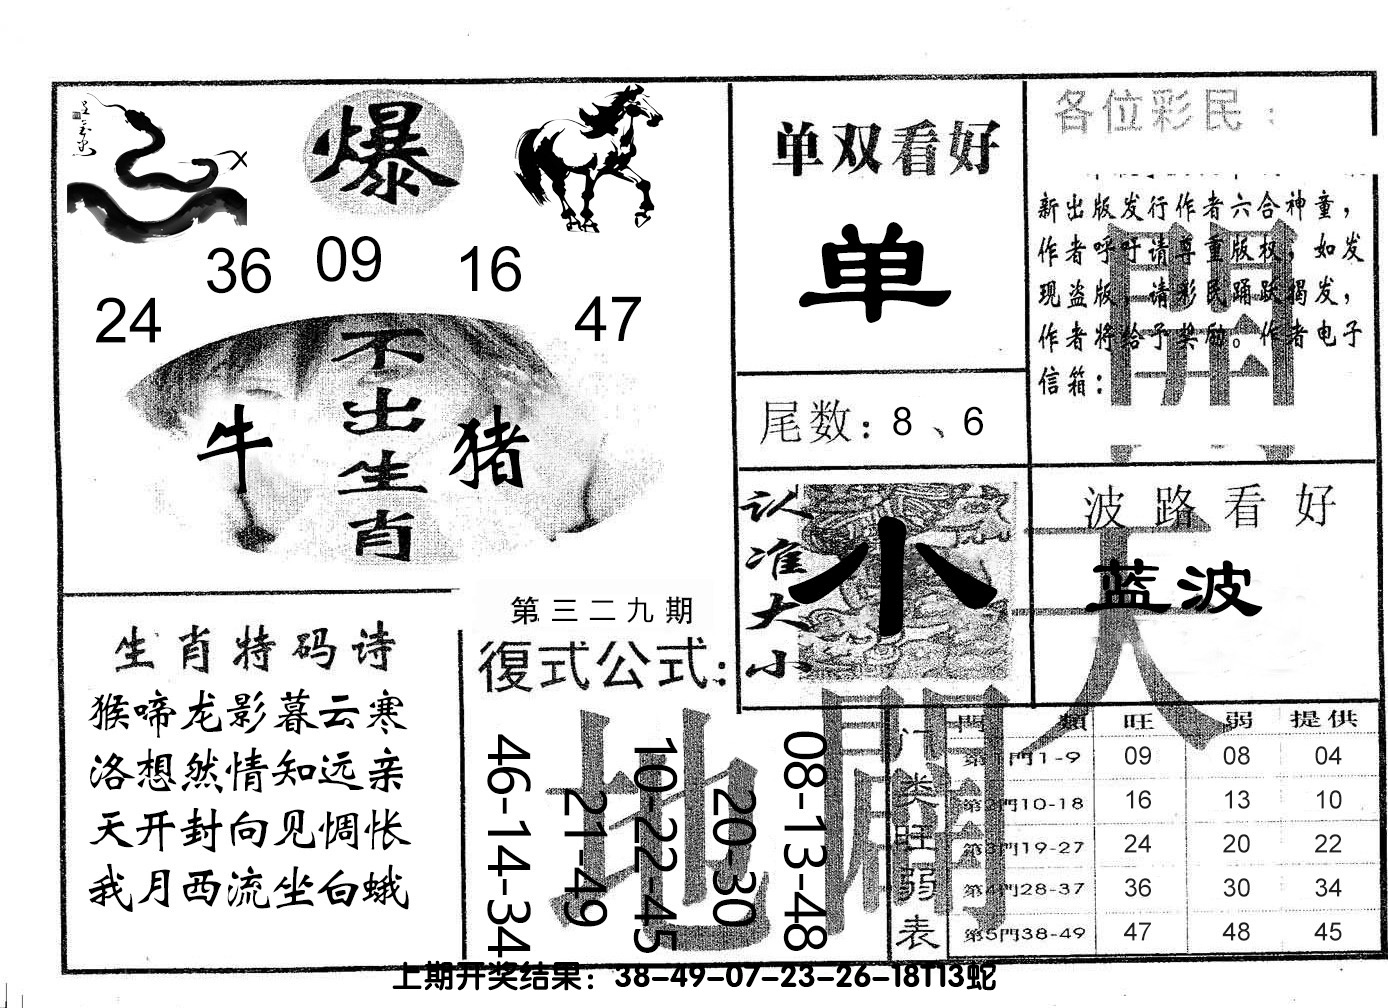 爆
36 09 16
24 47
不出生肖
牛 猪
单双看好
单
尾数：8、6
各位彩民：
新出版发行作者六合神童，
作者呼吁请尊重版权，如发
现盗版，请彩民踊跃揭发，
作者将给予奖励。作者电子
信箱：
認准大小
小
波路看好
蓝波
生肖特码诗
猴啼龙影暮云寒
洛想然情知远亲
天开封向见惆怅
我月西流坐白蛾
第三二九期
復式公式：
46-14-34
21-49
10-22-45
20-30
08-13-48
天開
地闢
门类旺弱表
門類 旺 弱 提供
第1門1-9 09 08 04
第2門10-18 16 13 10
第3門19-27 24 20 22
第4門28-37 36 30 34
第5門38-49 47 48 45
上期开奖结果：38-49-07-23-26-18T13蛇